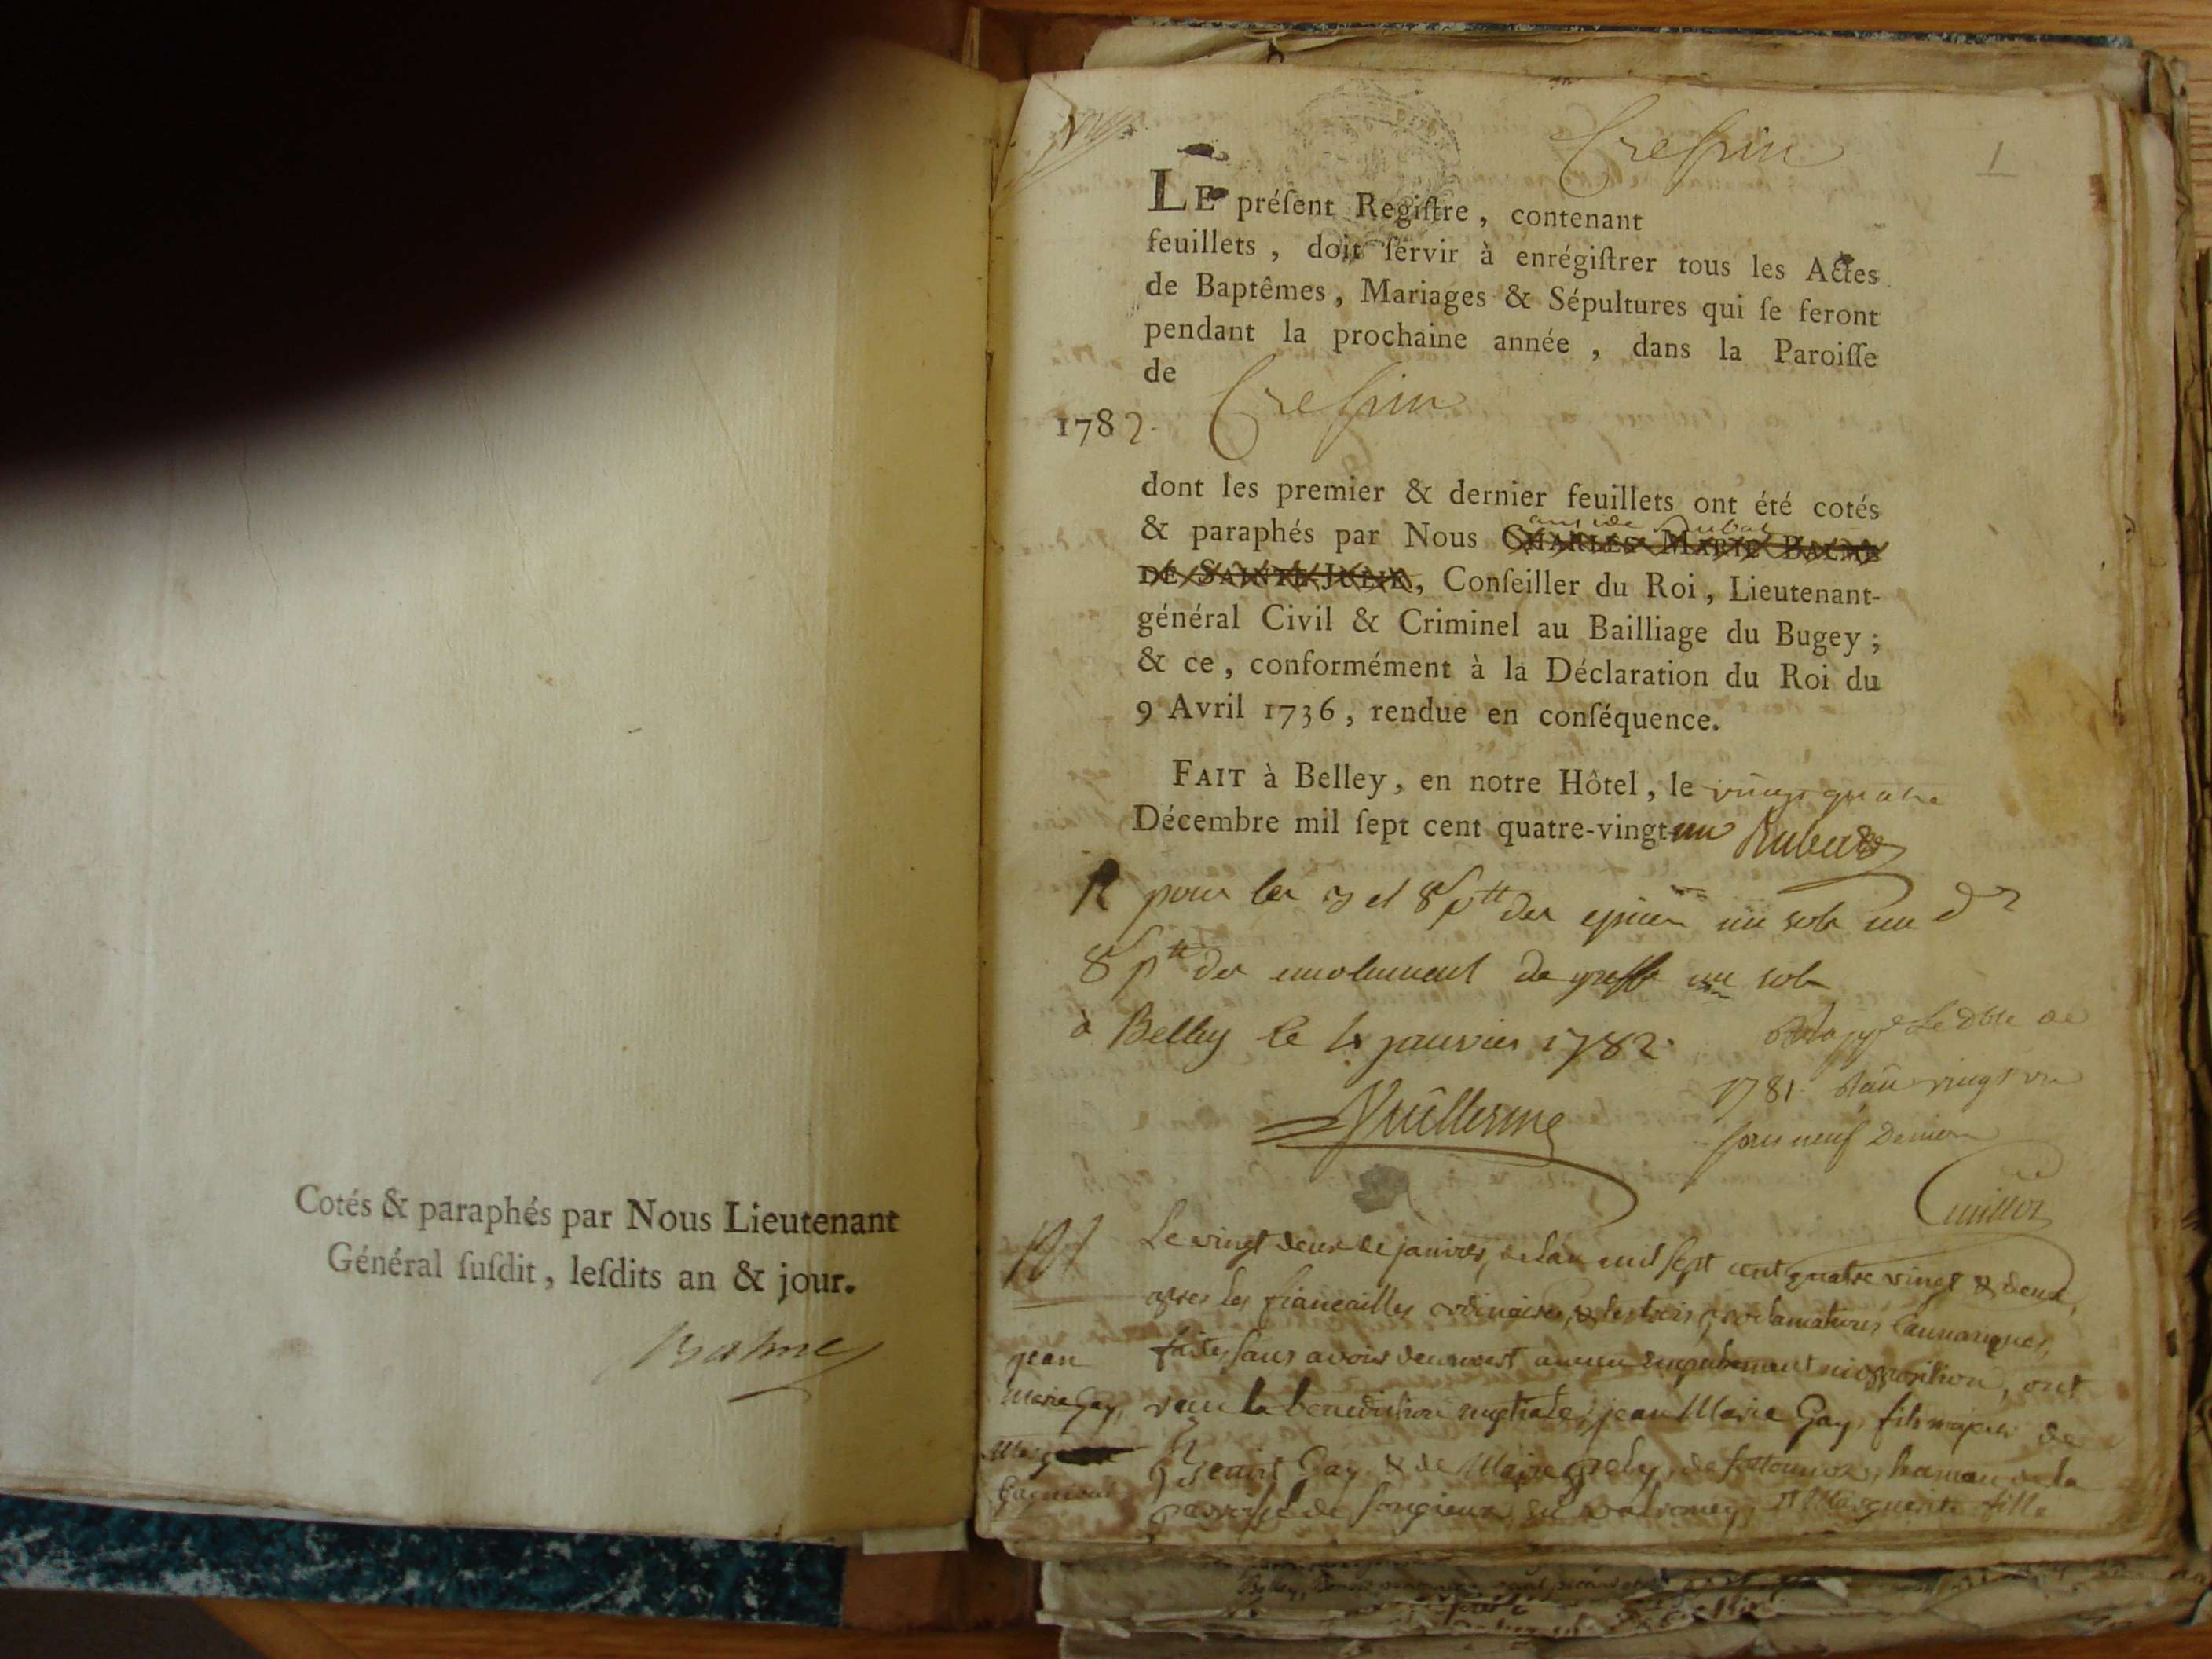 Cotés & paraphés par Nous Lieutenant
Général ſuſdit, leſdits an & jour.
Balme
Creſsin
1
LE préſent Regiſtre, contenant
feuillets, doit ſervir à enrégiſtrer tous les Actes
de Baptêmes, Mariages & Sépultures qui ſe feront
pendant la prochaine année, dans la Paroiſſe
de Creſsin
1782.
dont les premier & dernier feuillets ont été cotés
& paraphés par Nous CHARLES MARIE BALME
DE SAINTE JULIE, Conſeiller du Roi, Lieutenant-
général Civil & Criminel au Bailliage du Bugey ;
& ce, conformément à la Déclaration du Roi du
9 Avril 1736, rendue en conſéquence.
FAIT à Belley, en notre Hôtel, le vingt quatre
Décembre mil ſept cent quatre-vingt-un
R pour les et 8 des epices un sols un
8 des emolument de greffe un sols
à Belley le 4 janvier 1782.
1781. vingt un
sous neuf deniers
Vuillerme
Guillot
Le vingt deux de janvier, de l'an mil sept cent quatre vingt & deux,
apres les fiancailles ordinaires, & les trois proclamations canoniques,
faites sans avoir decouvert aucun empechement ni opposition, ont
jean
Marie Gay,
recu la benediction nuptiale; jean Marie Gay, fils majeur de
Benoit Gay & de Marie, hameau de la
parroisse de Songieux en valromey, & Marguerite fille